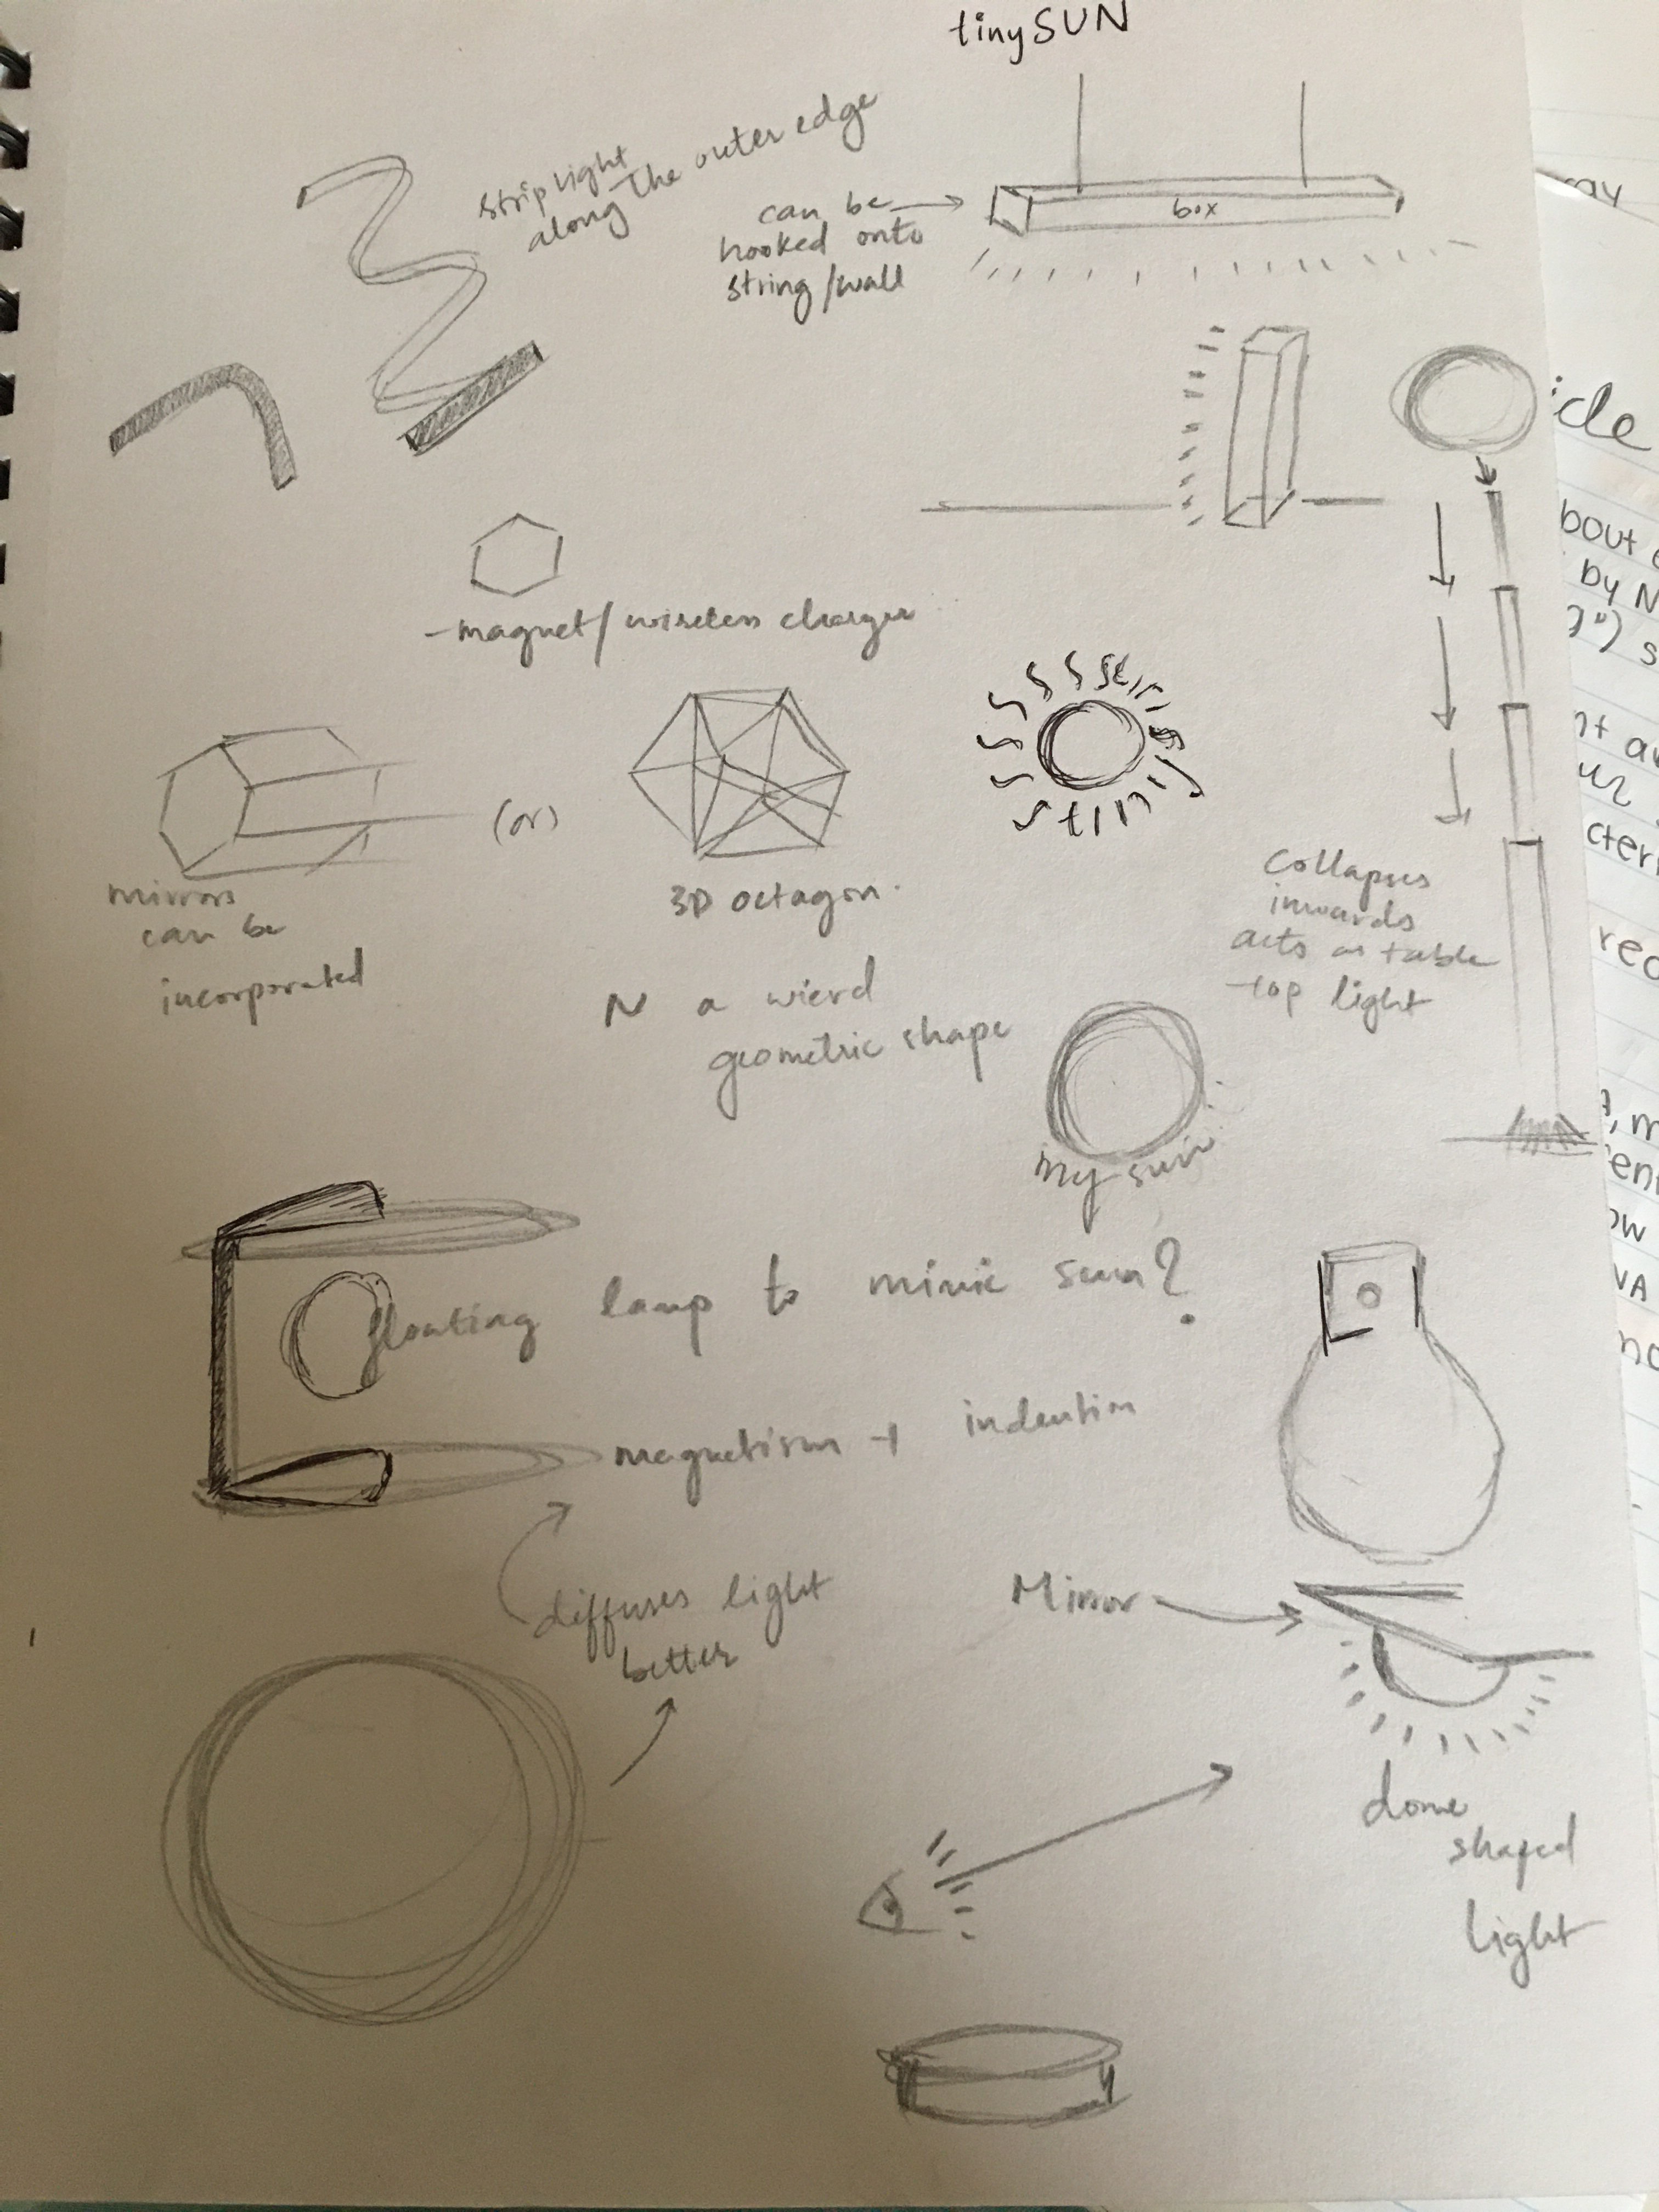 tinySUN
strip light
along the outer edge
can be
hooked onto
string/wall
box
ray
icle
bout
by N
- magnet/ wireless charger
(or)
mirrors
can be
incorporated
3D octagon.
N a wierd
geometric shape
collapses
inwards
acts as table
top light
cter
my sun
floating lamp to mimic sun?
magnetism + indention
diffuses light
better
Mirror
dome
shaped
light